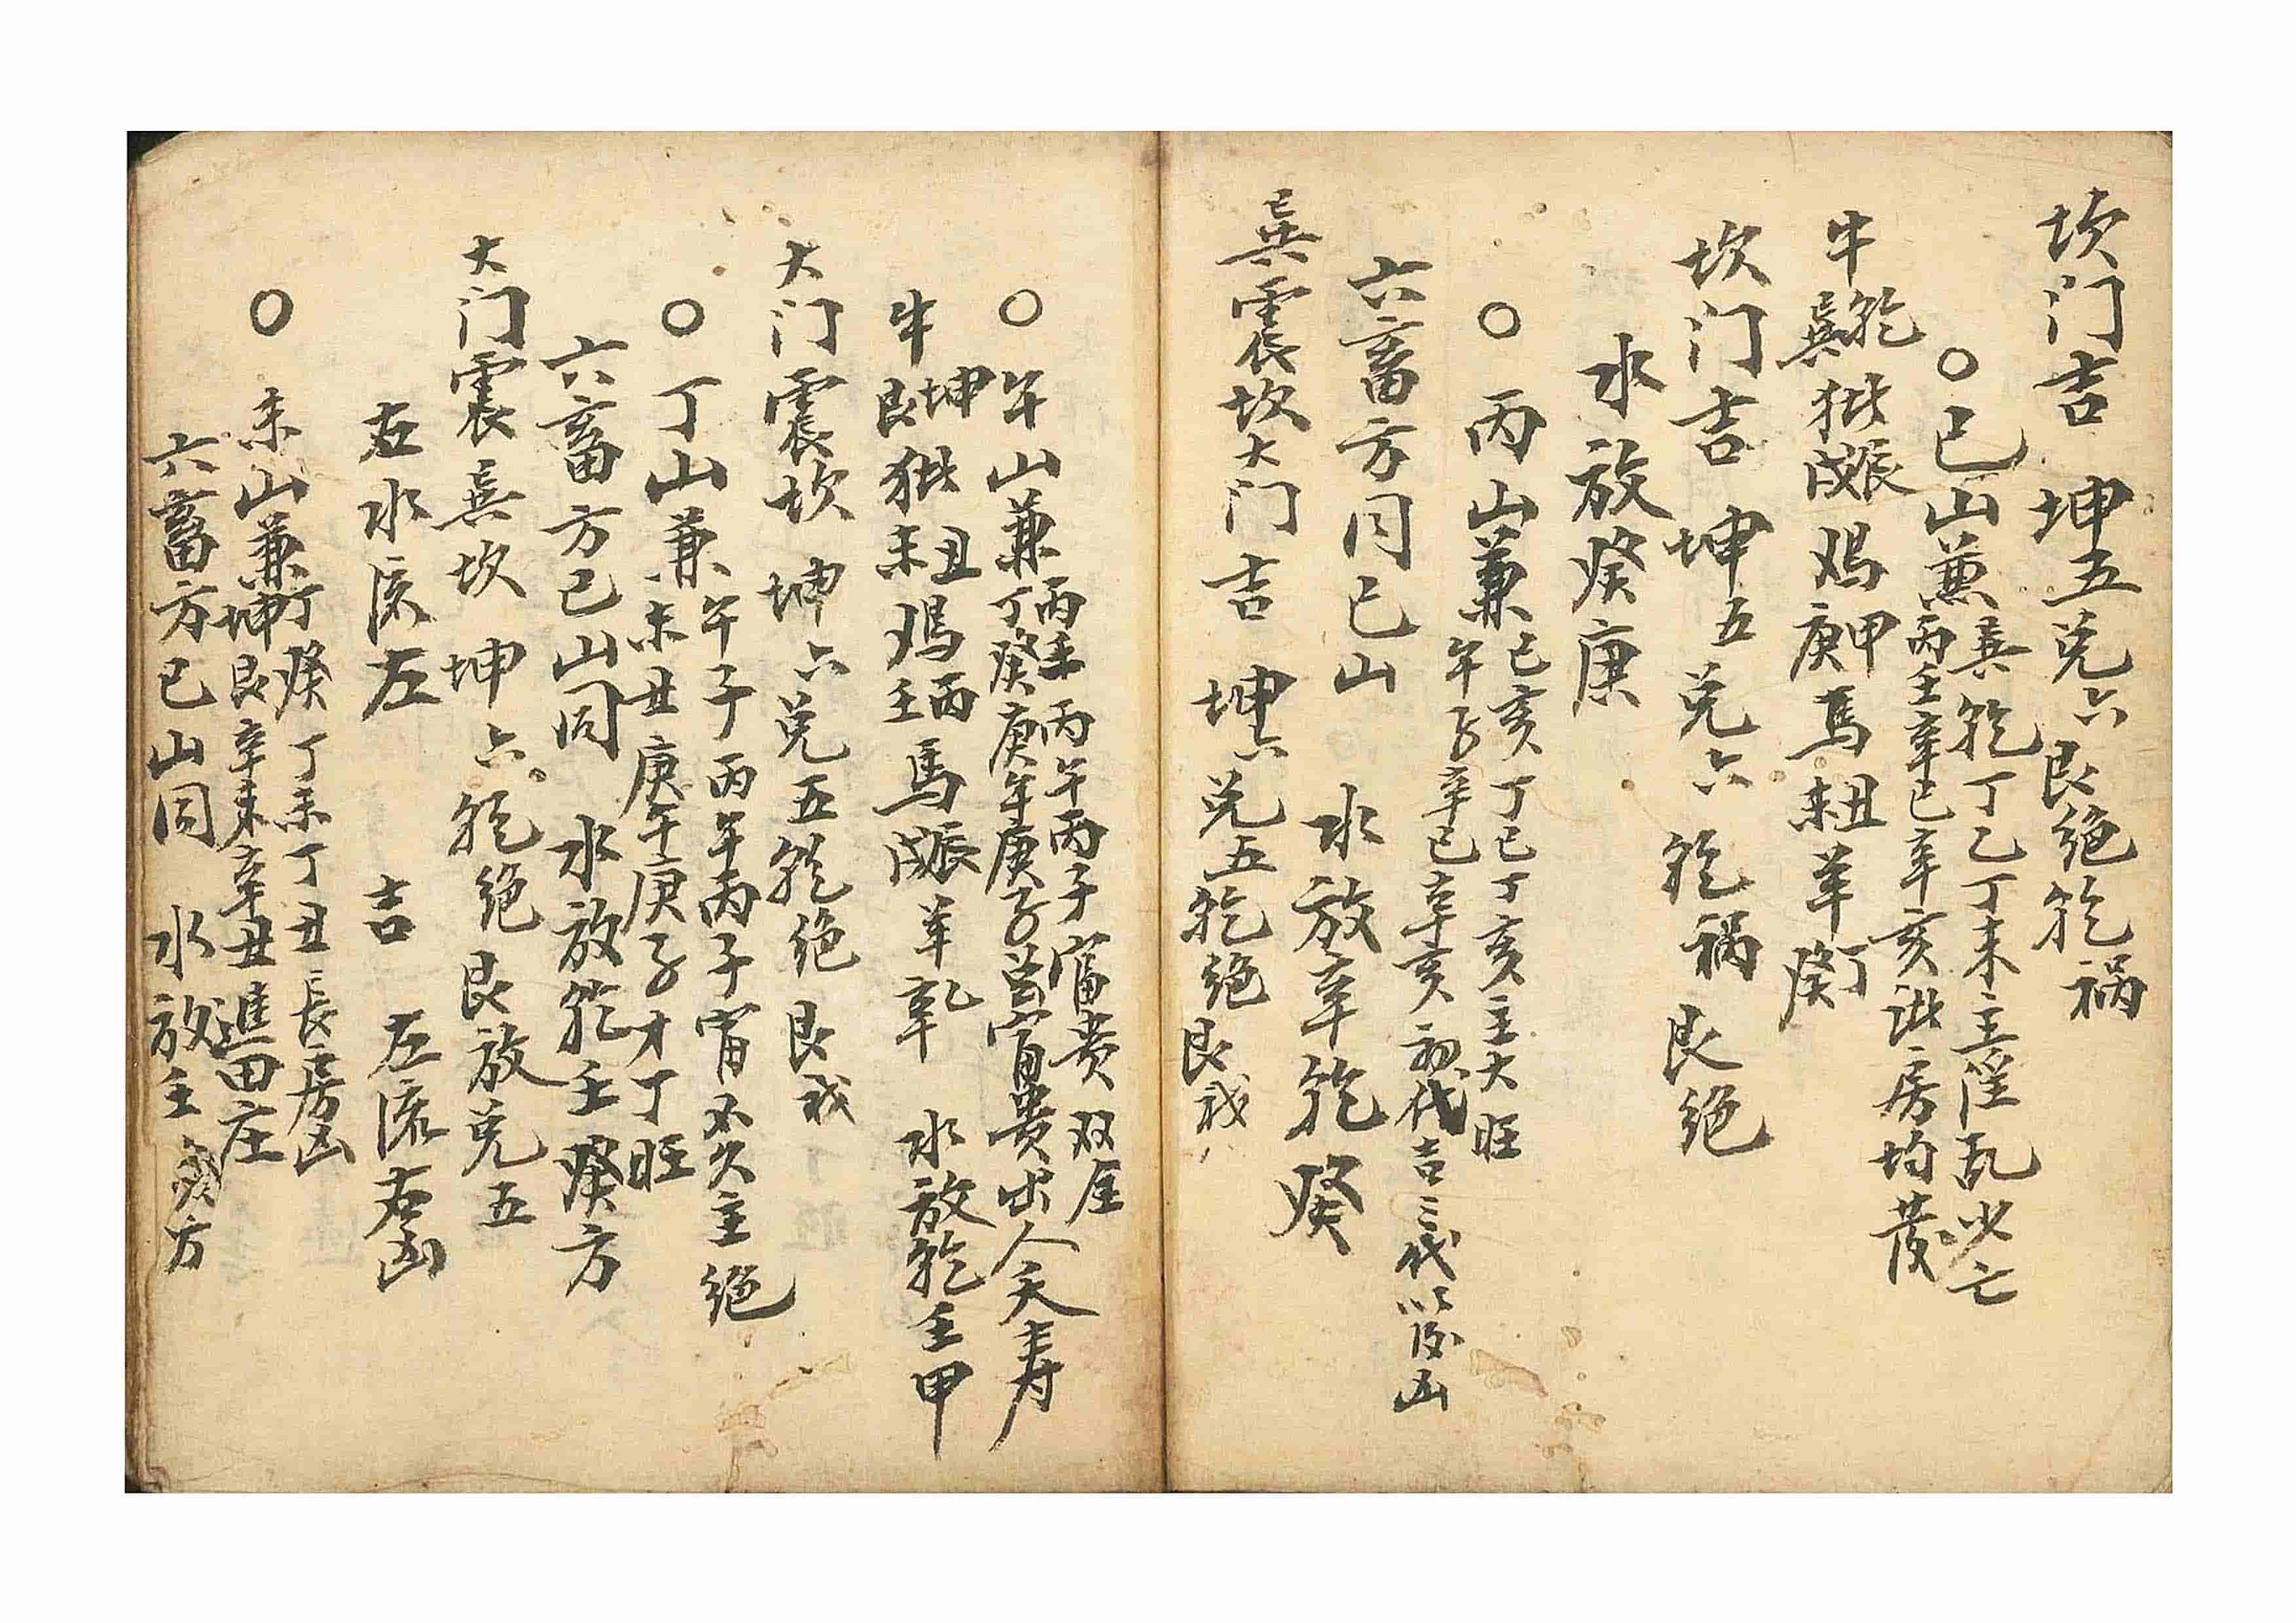 坎门吉 坤五兑六艮绝乾祸
○巳山兼巽乾丁乙丁未主淫乱少亡
丙壬辛巳辛亥 房均发
牛乾巽 戌辰鸡甲庚馬丑未羊丁癸
坎门吉 坤五兑六 乾祸 艮绝
水放癸庚
○丙山兼巳亥丁巳丁亥主大旺
午子辛巳辛亥初代吉三代以后凶
六畜方同巳山 水放辛乾癸
巽震坎大门吉 坤六兑五乾绝艮
○午山兼丙壬丙午丙子富贵双全
丁癸庚午庚子 富贵出人夭寿
牛坤艮 丑未鸡丙壬馬戌辰羊 水放乾壬甲
大门震坎 坤六兑五乾绝艮
○丁山兼午子丙午丙子富不久主绝
未丑庚午庚子才丁旺
六畜方巳山同 水放乾壬癸方
大门震巽坎 坤六乾绝艮放兑五
左水流左 吉 左流右凶
○未山兼丁癸丁未丁丑長房凶
坤艮辛未辛丑進田庄
六畜方巳山同 水放壬癸方